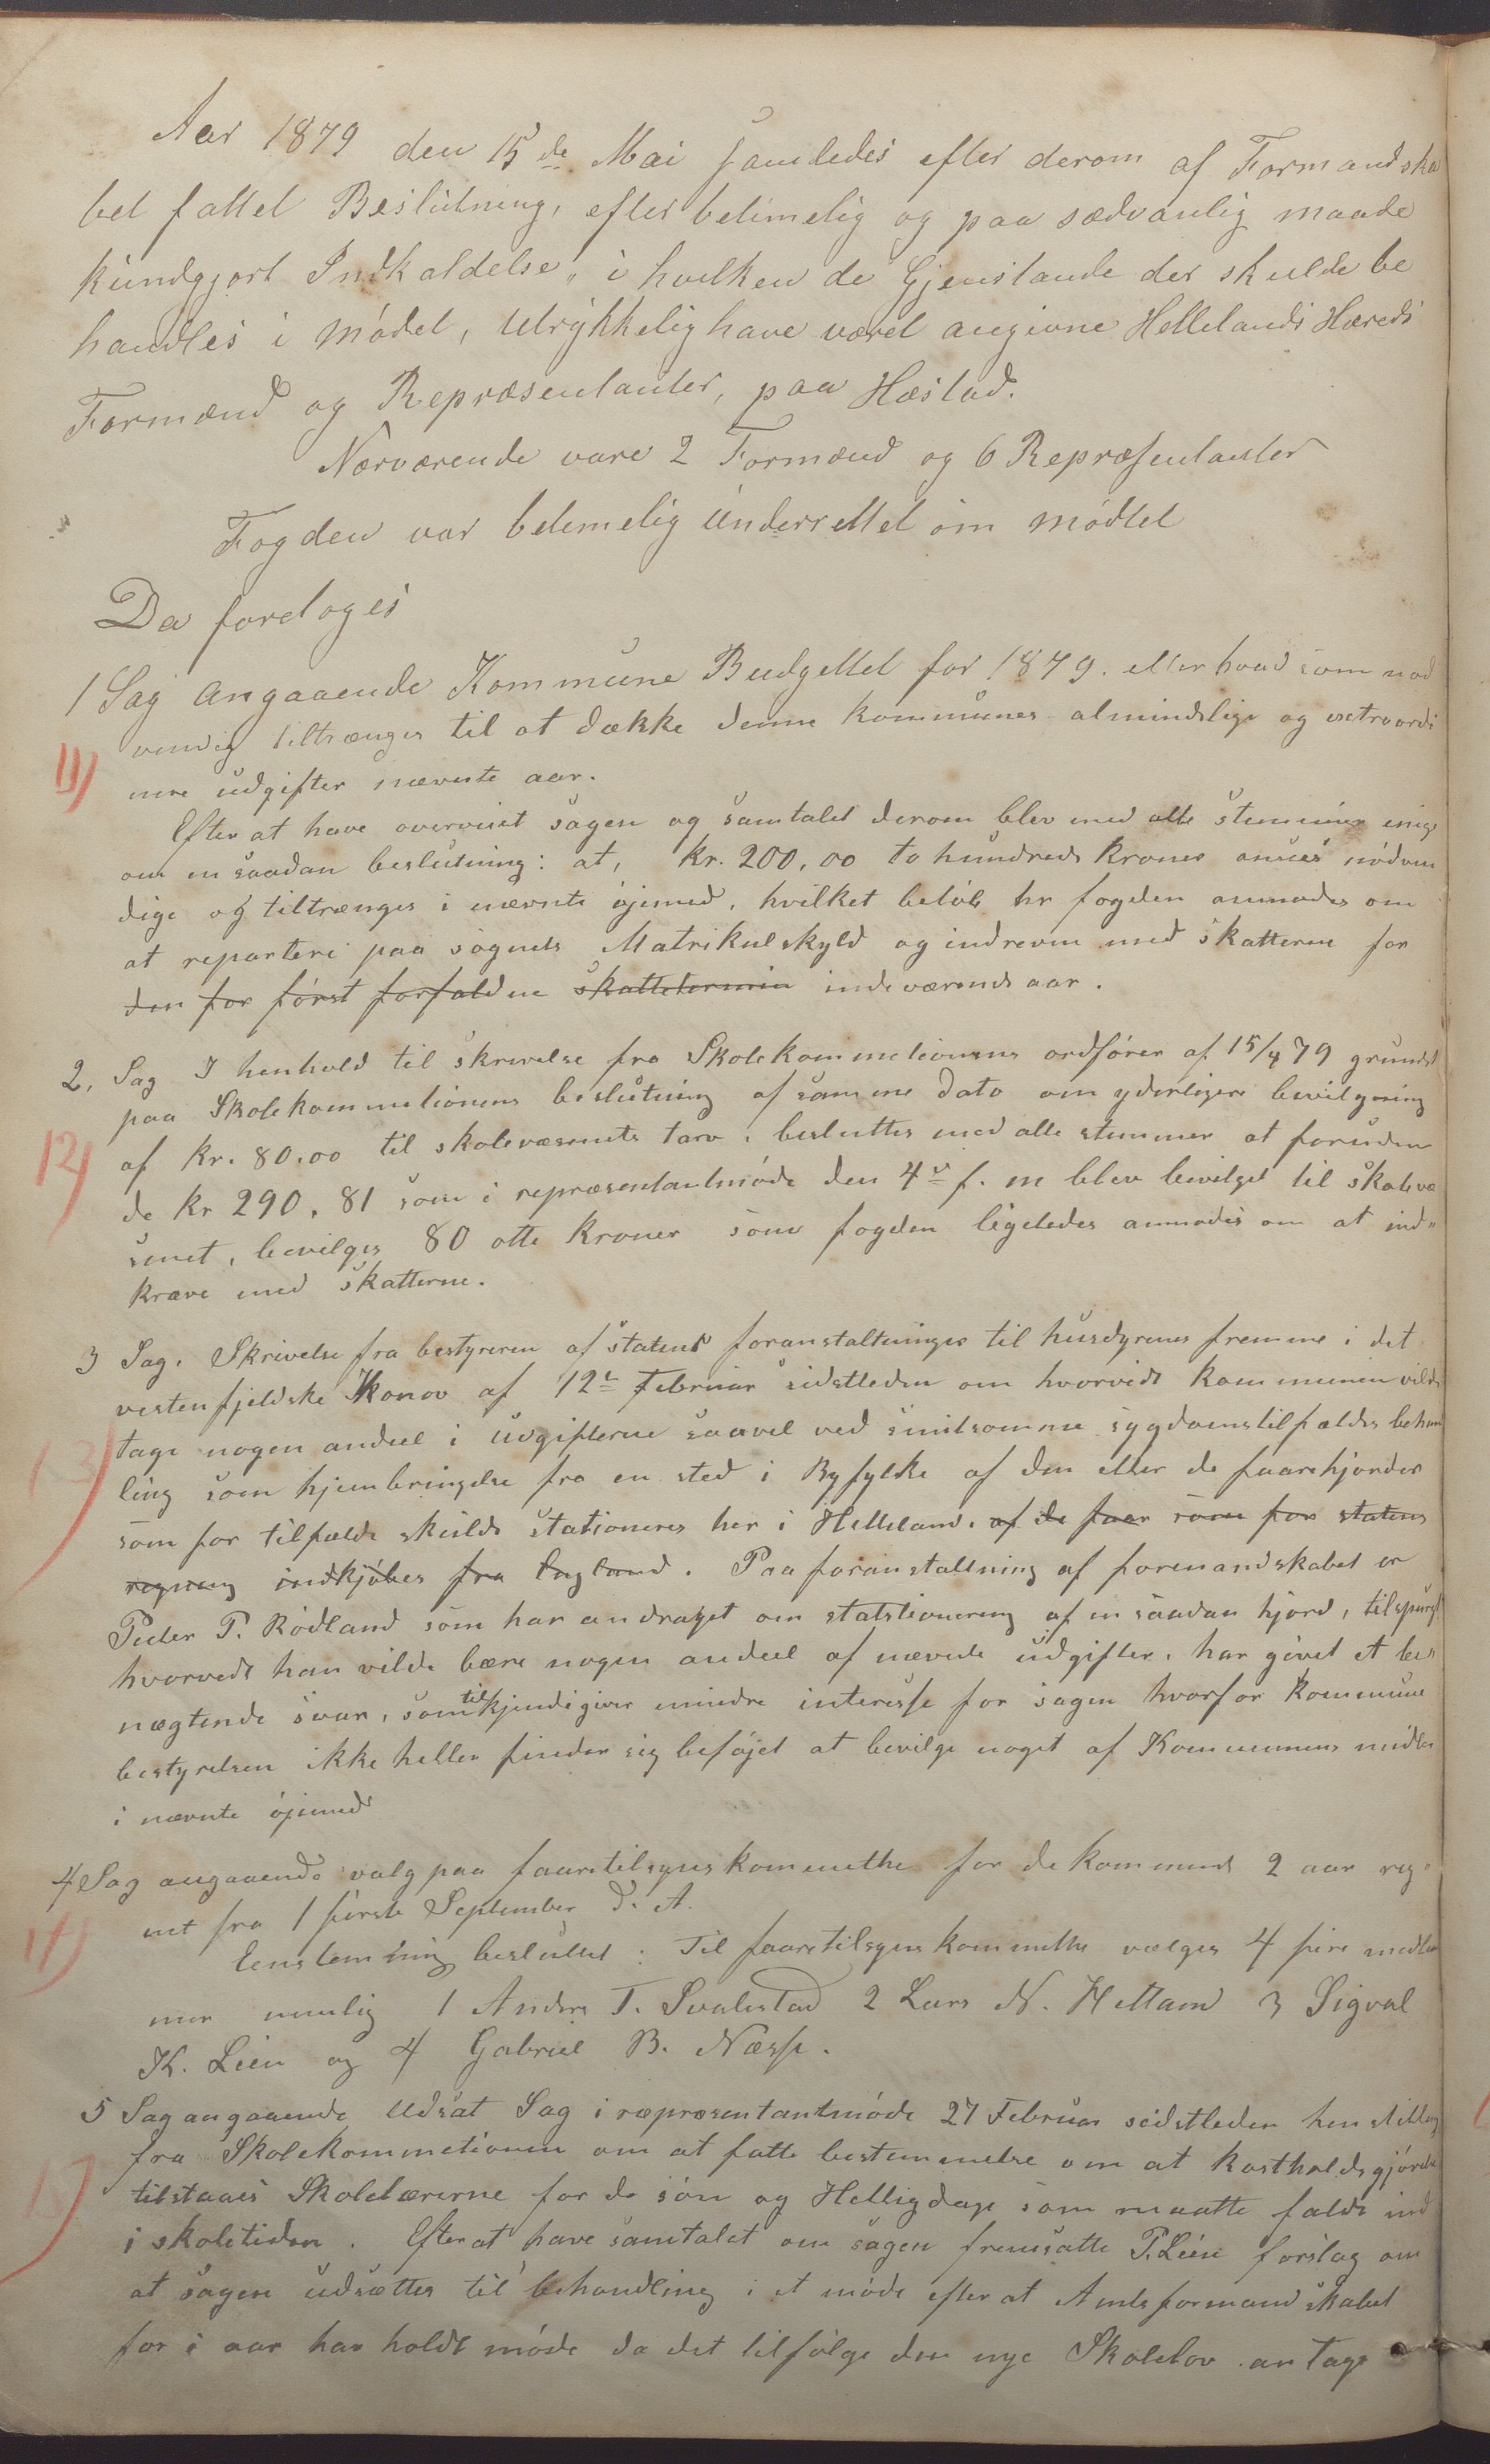 Aar 1879 den 15de Mai samledes efter derom af Formandska
bet fattet Beslutning, efter betimelig og paa sædvanlig maade
kundgjort Indkaldelse, i hvilken de Gjenstande der skulde be
handles i mødet, udtrykkelig have været angivne Hellelands Hæreds
Formænd og Repræsentanter, paa Hæstad.
Nærværende vare 2 Formænd og 6 Repræsentanter
Fogden var betimelig Underrettet om mødtet
Da foretoges
1 Sag angaaende Kommune Budgettet for 1879. eller hvad som nød
11) vendig tiltrænges til at dække denne kommunes almindelige og extraordi
nere udgifter nævnte aar.
Efter at have overveiet sagen og samtalet derom blev med alle stemmer enige
om en saadan beslutning: at, kr. 200,00 to hundrede kroner ansees nødven
dige og tiltrænges i nævnte øjemed, hvilket beløb hr fogden anmodes om
at repartere paa sognets Matrikulskyld og indrevne med skatterne for
den for først forfaldne skattetermin indeværende aar.
2, Sag I henhold til skrivelse fra Skolekommetionens ordfører af 15/4 79 grundet
paa Skolekommetionens beslutning af samme dato om yderligere bevilgning
12) af kr. 80.00 til skolevæsenets tarv, besluttes med alle stemmer at foruden
de kr 290,81 som i repræsentantmøde den 4de f. m blev bevilget til skolevæ
senet, bevilges 80 otte kroner som fogden ligeledes anmodes om at ind"
kræve med skatterne.
3 Sag. Skrivelse fra bestyreren af statens foranstaltninger til husdyrenes fremme i det
vestenfjeldske Konov af 12te Februar sidstleden om hvorvidt kommunen vilde
13) tage nogen andeel i udgifterne saavel ved smitsomme sygdomstilfældes behand
ling som hjembringelse fra en sted i Ryfylke af den eller de faarehjorder
som for tilfælde skulde stationeres her i Helleland. af de faar som for statens
regning indkjøbes fra England. Paa foranstaltning af formandskabet er
Peder P. Rødland som har andraget om statstionering af en saadan hjord, tilspurgt
hvorvedt han vilde bære nogen andeel af nævnte udgifter, har givet et be"
nægtende svar, som tilkjendegiver mindre interesse for sagen hvorfor kommune
bestyrelsen ikke heller finder sig beføjet at bevilge noget af Kommunens midler
i nævnte øjemed
4 Sag angaaende valg paa faaretilsynskommethe for de kommende 2 aar reg"
14) net fra 1 første September d. A.
Eenstemmig besluttet: Til faaretilsynskommethe vælges 4 fire medlem
mer nemlig 1 Anders T. Svalestad 2 Lars N. Hetland 3 Sigval
K. Leen og 4 Gabriel B. Næsse.
5 Sag angaaende Udsat Sag i repræsentantmøde 27 Februar sidstleden henstilling
fra Skolekommetionen om at fatte bestemmelse om at kostholdsgjørelse
15) tilstaaes Skolelærerne for de søn og Helligdage som maatte falde ind
i skoletiden. Efter at have samtalet om sagen fremsatte P. Leen forslag om
at sagen udsættes til behandling i et møde efter at Amtsformandskabet
for i aar har holdt møde da det tilfølge den nye Skolelov antage